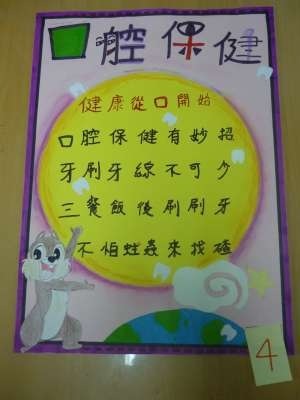 口腔保健
健康從口開始
口腔保健有妙招
牙刷牙線不可少
三餐飯後刷刷牙
不怕蛀蟲來找碴
4